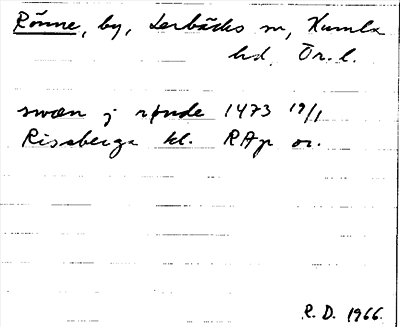 Rönne, by, Lerbäcks sn, Kumla
hd, Ör. l.
swæn j rønde 1473 19/1
Riseberga kl. RAp or.
R.D. 1966.